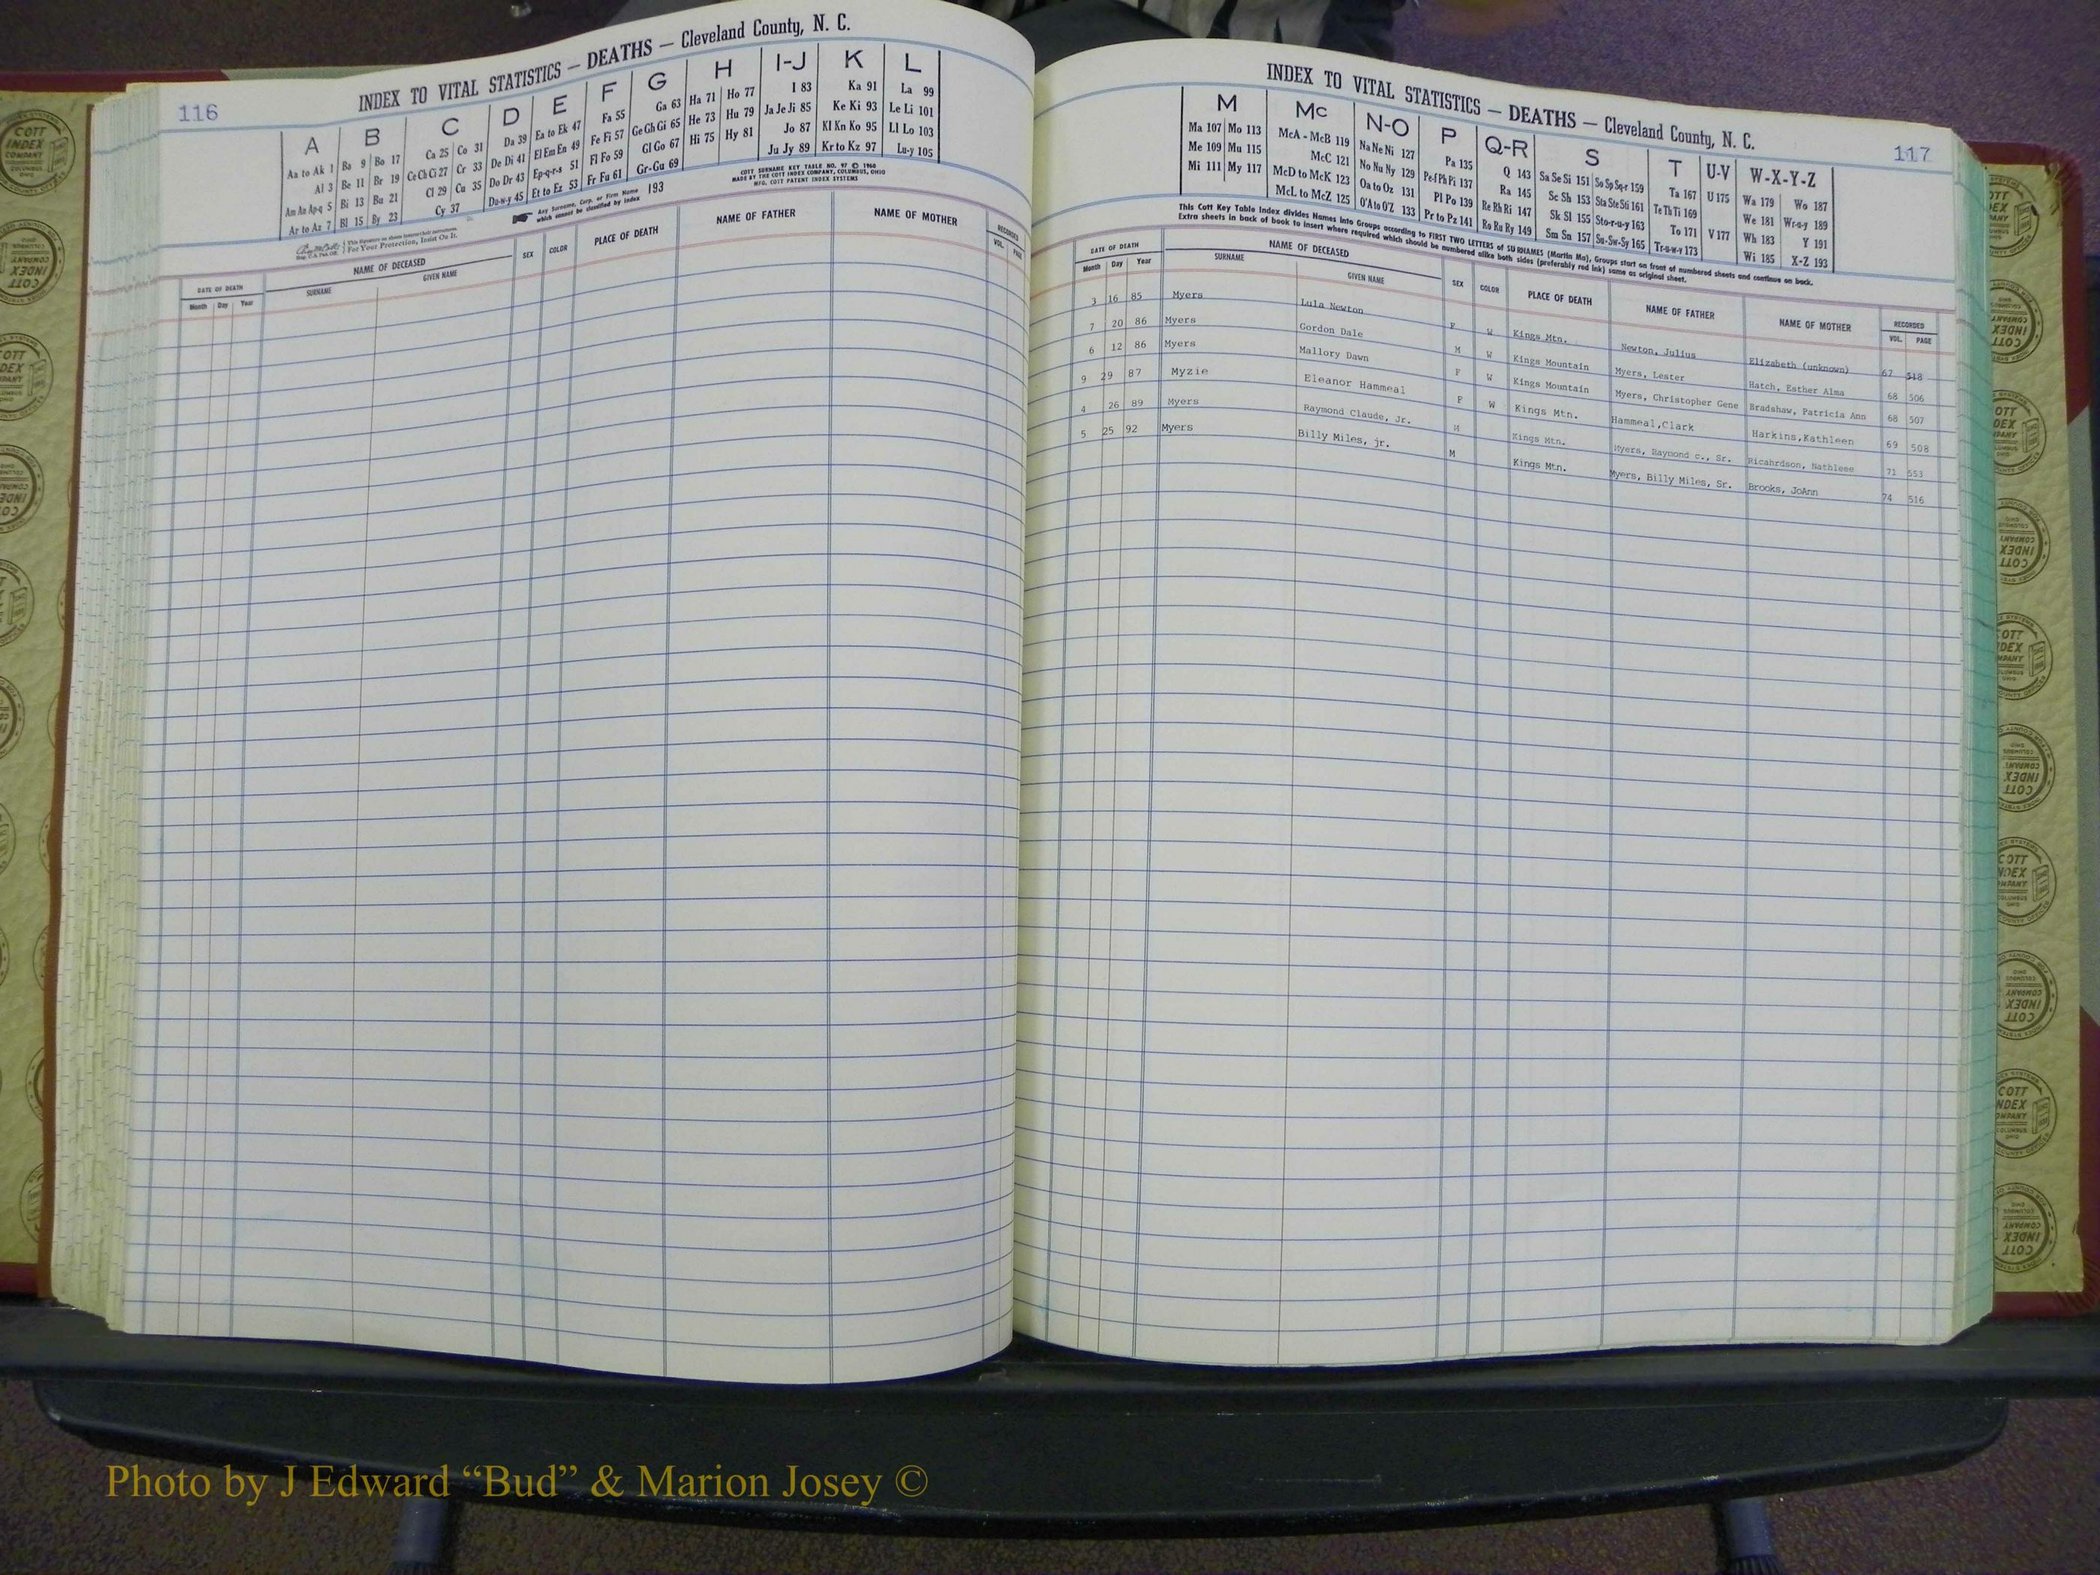 116
INDEX TO VITAL STATISTICS — DEATHS — Cleveland County, N. C.
A B C D E F G H I-J K L
Aa to Ak 1 Ba 9 Bo 17 Ca 25 Co 31 Da 39 Ea to Ek 47 Fa 55 Ga 63 Ha 71 Ho 77 I 83 Ka 91 La 99
Al 3 Be 11 Br 19 Ce Ch Ci 27 Cr 33 De Di 41 El Em En 49 Fe Fi 57 Ge Gh Gi 65 He 73 Hu 79 Ja Je Ji 85 Ke Ki 93 Le Li 101
Am An Ap-q 5 Bi 13 Bu 21 Cl 29 Cu 35 Do Dr 43 Ep-q-r-s 51 Fl Fo 59 Gl Go 67 Hi 75 Hy 81 Jo 87 Kl Kn Ko 95 Ll Lo 103
Ar to Az 7 Bl 15 By 23 Cy 37 Du-w-y 45 Et to Ez 53 Fr Fu 61 Gr-Gu 69 Ju Jy 89 Kr to Kz 97 Lu-y 105
Any Surname, Corp. or Firm Name which cannot be classified by index 193
COTT SURNAME KEY TABLE NO. 97 © 1960
MADE BY THE COTT INDEX COMPANY, COLUMBUS, OHIO
MFG. COTT PATENT INDEX SYSTEMS
For Your Protection, Insist On It.
DATE OF DEATH NAME OF DECEASED SEX COLOR PLACE OF DEATH NAME OF FATHER NAME OF MOTHER RECORDED
Month Day Year SURNAME GIVEN NAME VOL. PAGE
INDEX TO VITAL STATISTICS — DEATHS — Cleveland County, N. C.
117
M Mc N-O P Q-R S T U-V W-X-Y-Z
Ma 107 Mo 113 McA - McB 119 Na Ne Ni 127 Pa 135 Q 143 Sa Se Si 151 So Sp Sq-r 159 Ta 167 U 175 Wa 179 Wo 187
Me 109 Mu 115 McC 121 No Nu Ny 129 Pe-f Ph Pi 137 Ra 145 Sc Sh 153 Sta Ste Sti 161 Te Th Ti 169 We 181 Wr-u-y 189
Mi 111 My 117 McD to McK 123 Oa to Oz 131 Pl Po 139 Re Rh Ri 147 Sk Sl 155 Sto-r-u-y 163 To 171 V 177 Wh 183 Y 191
McL to McZ 125 O'A to O'Z 133 Pr to Pz 141 Ro Ru Ry 149 Sm Sn 157 Su-Sw-Sy 165 Tr-u-w-y 173 Wi 185 X-Z 193
This Cott Key Table Index divides Names into Groups according to FIRST TWO LETTERS of SURNAMES (Martin Ma), Groups start on front of numbered sheets and continue on back.
Extra sheets in back of book to insert where required which should be numbered alike both sides (preferably red ink) same as original sheet.
DATE OF DEATH NAME OF DECEASED SEX COLOR PLACE OF DEATH NAME OF FATHER NAME OF MOTHER RECORDED
Month Day Year SURNAME GIVEN NAME VOL. PAGE
3 16 85 Myers Lula Newton F W Kings Mtn. Newton, Julius Elizabeth (unknown) 67 518
7 20 86 Myers Gordon Dale M W Kings Mountain Myers, Lester Hatch, Esther Alma 68 506
6 12 86 Myers Mallory Dawn F W Kings Mountain Myers, Christopher Gene Bradshaw, Patricia Ann 68 507
9 29 87 Myzie Eleanor Hammeal F W Kings Mtn. Hammeal,Clark Harkins,Kathleen 69 508
4 26 89 Myers Raymond Claude, Jr. M Kings Mtn. Myers, Raymond c., Sr. Ricahrdson, Nathleee 71 553
5 25 92 Myers Billy Miles, jr. M Kings Mtn. Myers, Billy Miles, Sr. Brooks, JoAnn 74 516
COTT
INDEX
COMPANY
COLUMBUS
OHIO
Photo by J Edward “Bud” & Marion Josey ©